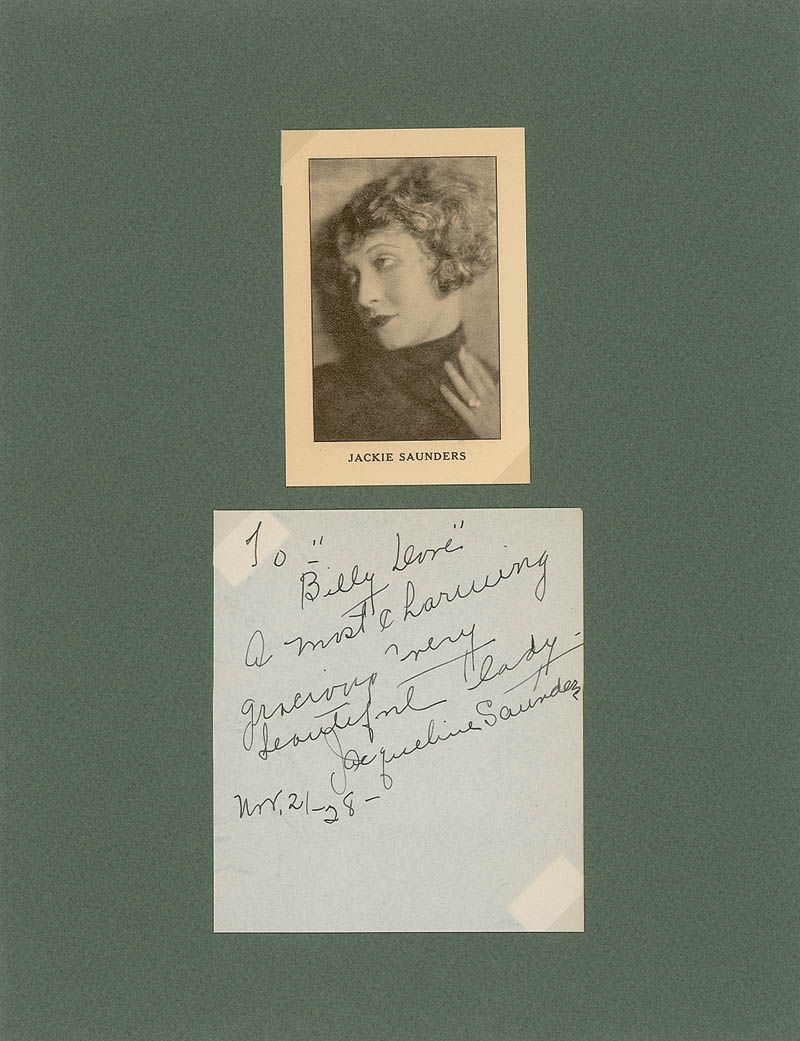 JACKIE SAUNDERS
To "
Billy Dove"
A most charming
gracious very
beautiful lady-
Jacqueline Saunders
Nov. 21-28-